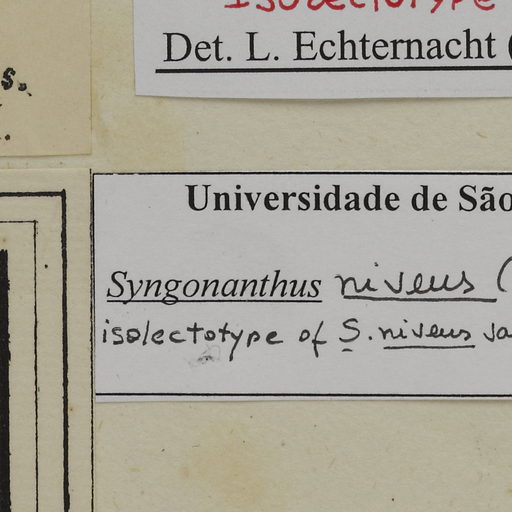 Isolectotype
Det. L. Echternacht (
s.
Universidade de São
Syngonanthus niveus (
isolectotype of S. niveus va